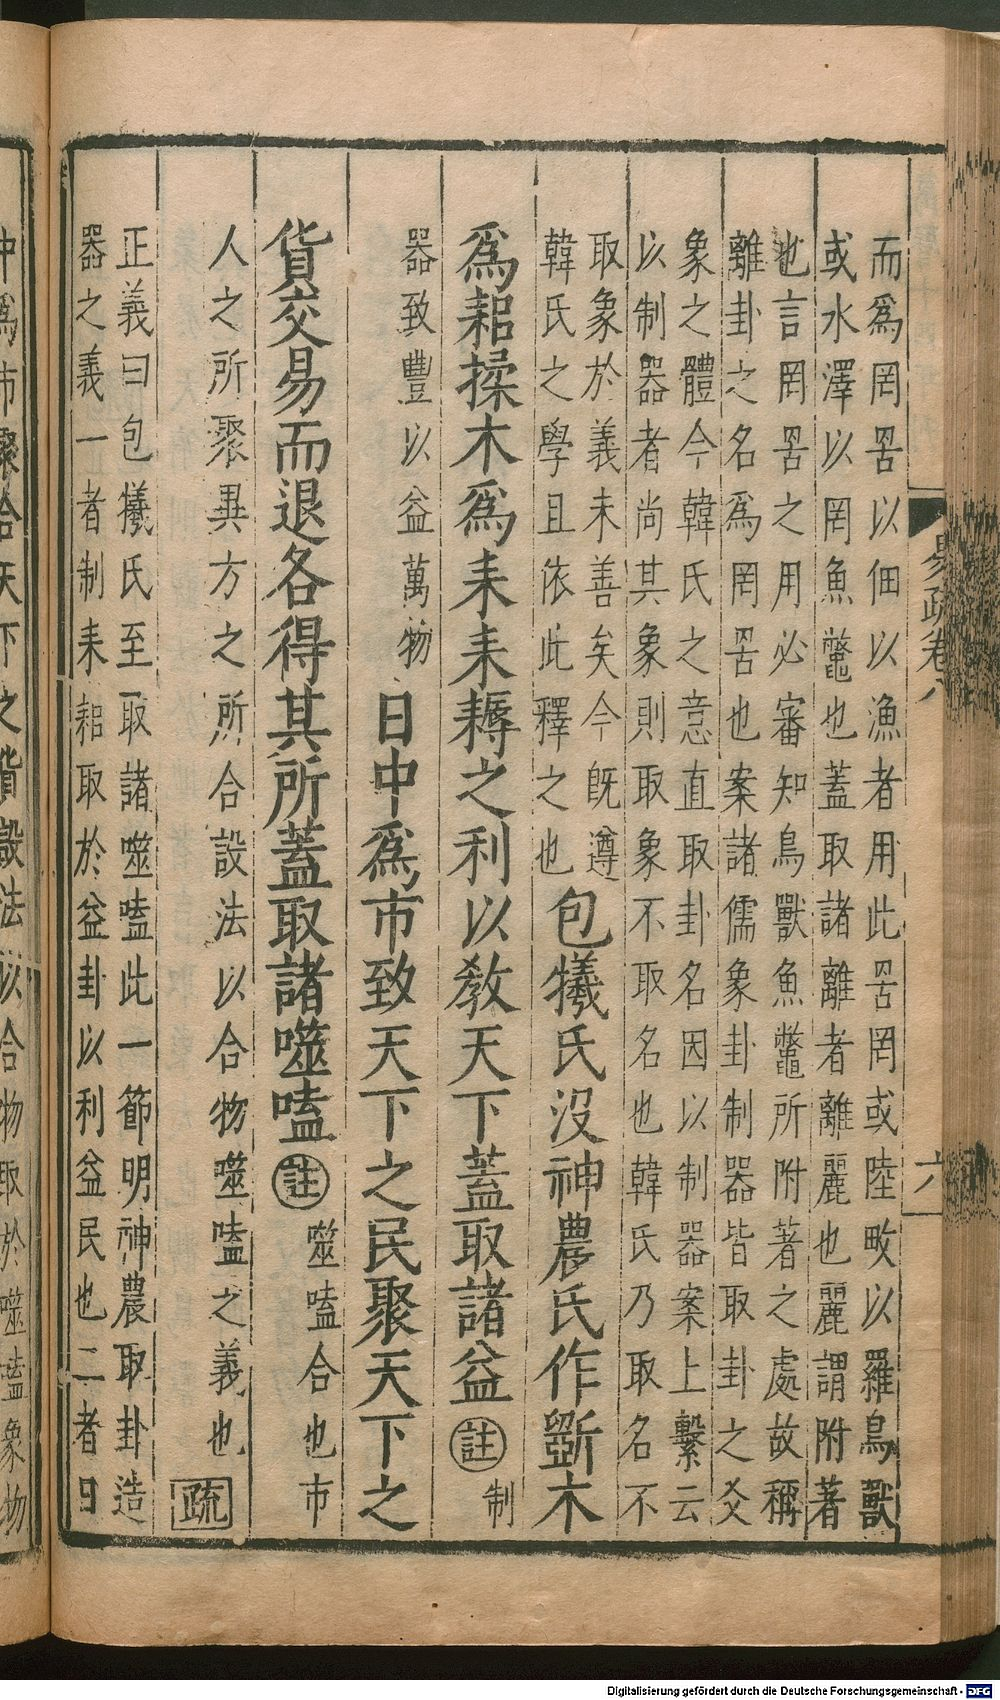 易疏卷八
六
而爲罔罟以佃以漁者用此罟罔或陸畋以羅鳥獸
或水澤以罔魚鼈也蓋取諸離者離麗也麗謂附著
也言罔罟之用必審知鳥獸魚鼈所附著之處故稱
離卦之名爲罔罟也案諸儒象卦制器皆取卦之爻
象之體今韓氏之意直取卦名因以制器案上繫云
以制器者尚其象則取象不取名也韓氏乃取名不
取象於義未善矣今既遵
韓氏之學且依此釋之也
包犧氏沒神農氏作斵木
爲耜揉木爲耒耒耨之利以教天下蓋取諸益 註 制
器致豐以益萬物 日中爲市致天下之民聚天下之
貨交易而退各得其所蓋取諸噬嗑 註 噬嗑合也市
人之所聚異方之所合設法以合物噬嗑之義也 疏
正義曰包犧氏至取諸噬嗑此一節明神農取卦造
器之義一者制耒耜取於益卦以利益民也二者日
中爲市聚合天下之貨設法以合物取於噬嗑象物
Digitalisierung gefördert durch die Deutsche Forschungsgemeinschaft - DFG